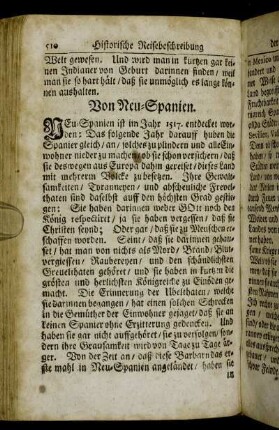 510 Historische Reisebeschreibung
Welt gewesen. Und wird man in kurtzen gar kei-
nen Indianer von Geburt darinnen finden / weil
man sie so hart hält / daß sie unmöglich es lange kön-
nen aushalten.
Von Neu-Spanien.
NEu-Spanien ist im Jahr 1517. entdecket wor-
den: Das folgende Jahr darauff huben die
Spanier gleich / an / solches zu plündern und alle Ein-
wohner nieder zu machen / ob sie schon versichern / daß
sie deswegen aus Europa dahin gereiset / dieses Land
mit mehrern Völcke zu besetzen. Ihre Gewalt-
samkeiten / Tyranneyen / und abscheuliche Frevel-
thaten sind daselbst auff den höchsten Grad gestie-
gen: Sie haben darinnen weder GOtt noch den
König respectiret / ja sie haben vergessen / daß sie
Christen seynd: Oder gar / daß sie zu Menschen er-
schaffen worden. Seint / daß sie darinnen gehau-
set / hat man von nichts als Mord / Brand / Blut-
vergiessen / Raubereyen / und den schändlichsten
Greuelthaten gehöret / und sie haben in kurtzen die
grösten und herlichsten Königreiche zu Einöden ge-
macht. Die Erinnerung der Ubelthaten / welche
sie darinnen begangen / hat einen solchen Schrecken
in die Gemüther der Einwohner gejaget / daß sie an
keinen Spanier ohne Erzitterung gedencken. Und
haben sie gar nicht auffgehöret / sie zu verfolgen / son-
dern ihre Grausamkeit wird von Tage zu Tage är-
ger. Von der Zeit an / daß diese Barbarn das er-
ste mahl in Neu-Spanien angeländet / haben sie
in